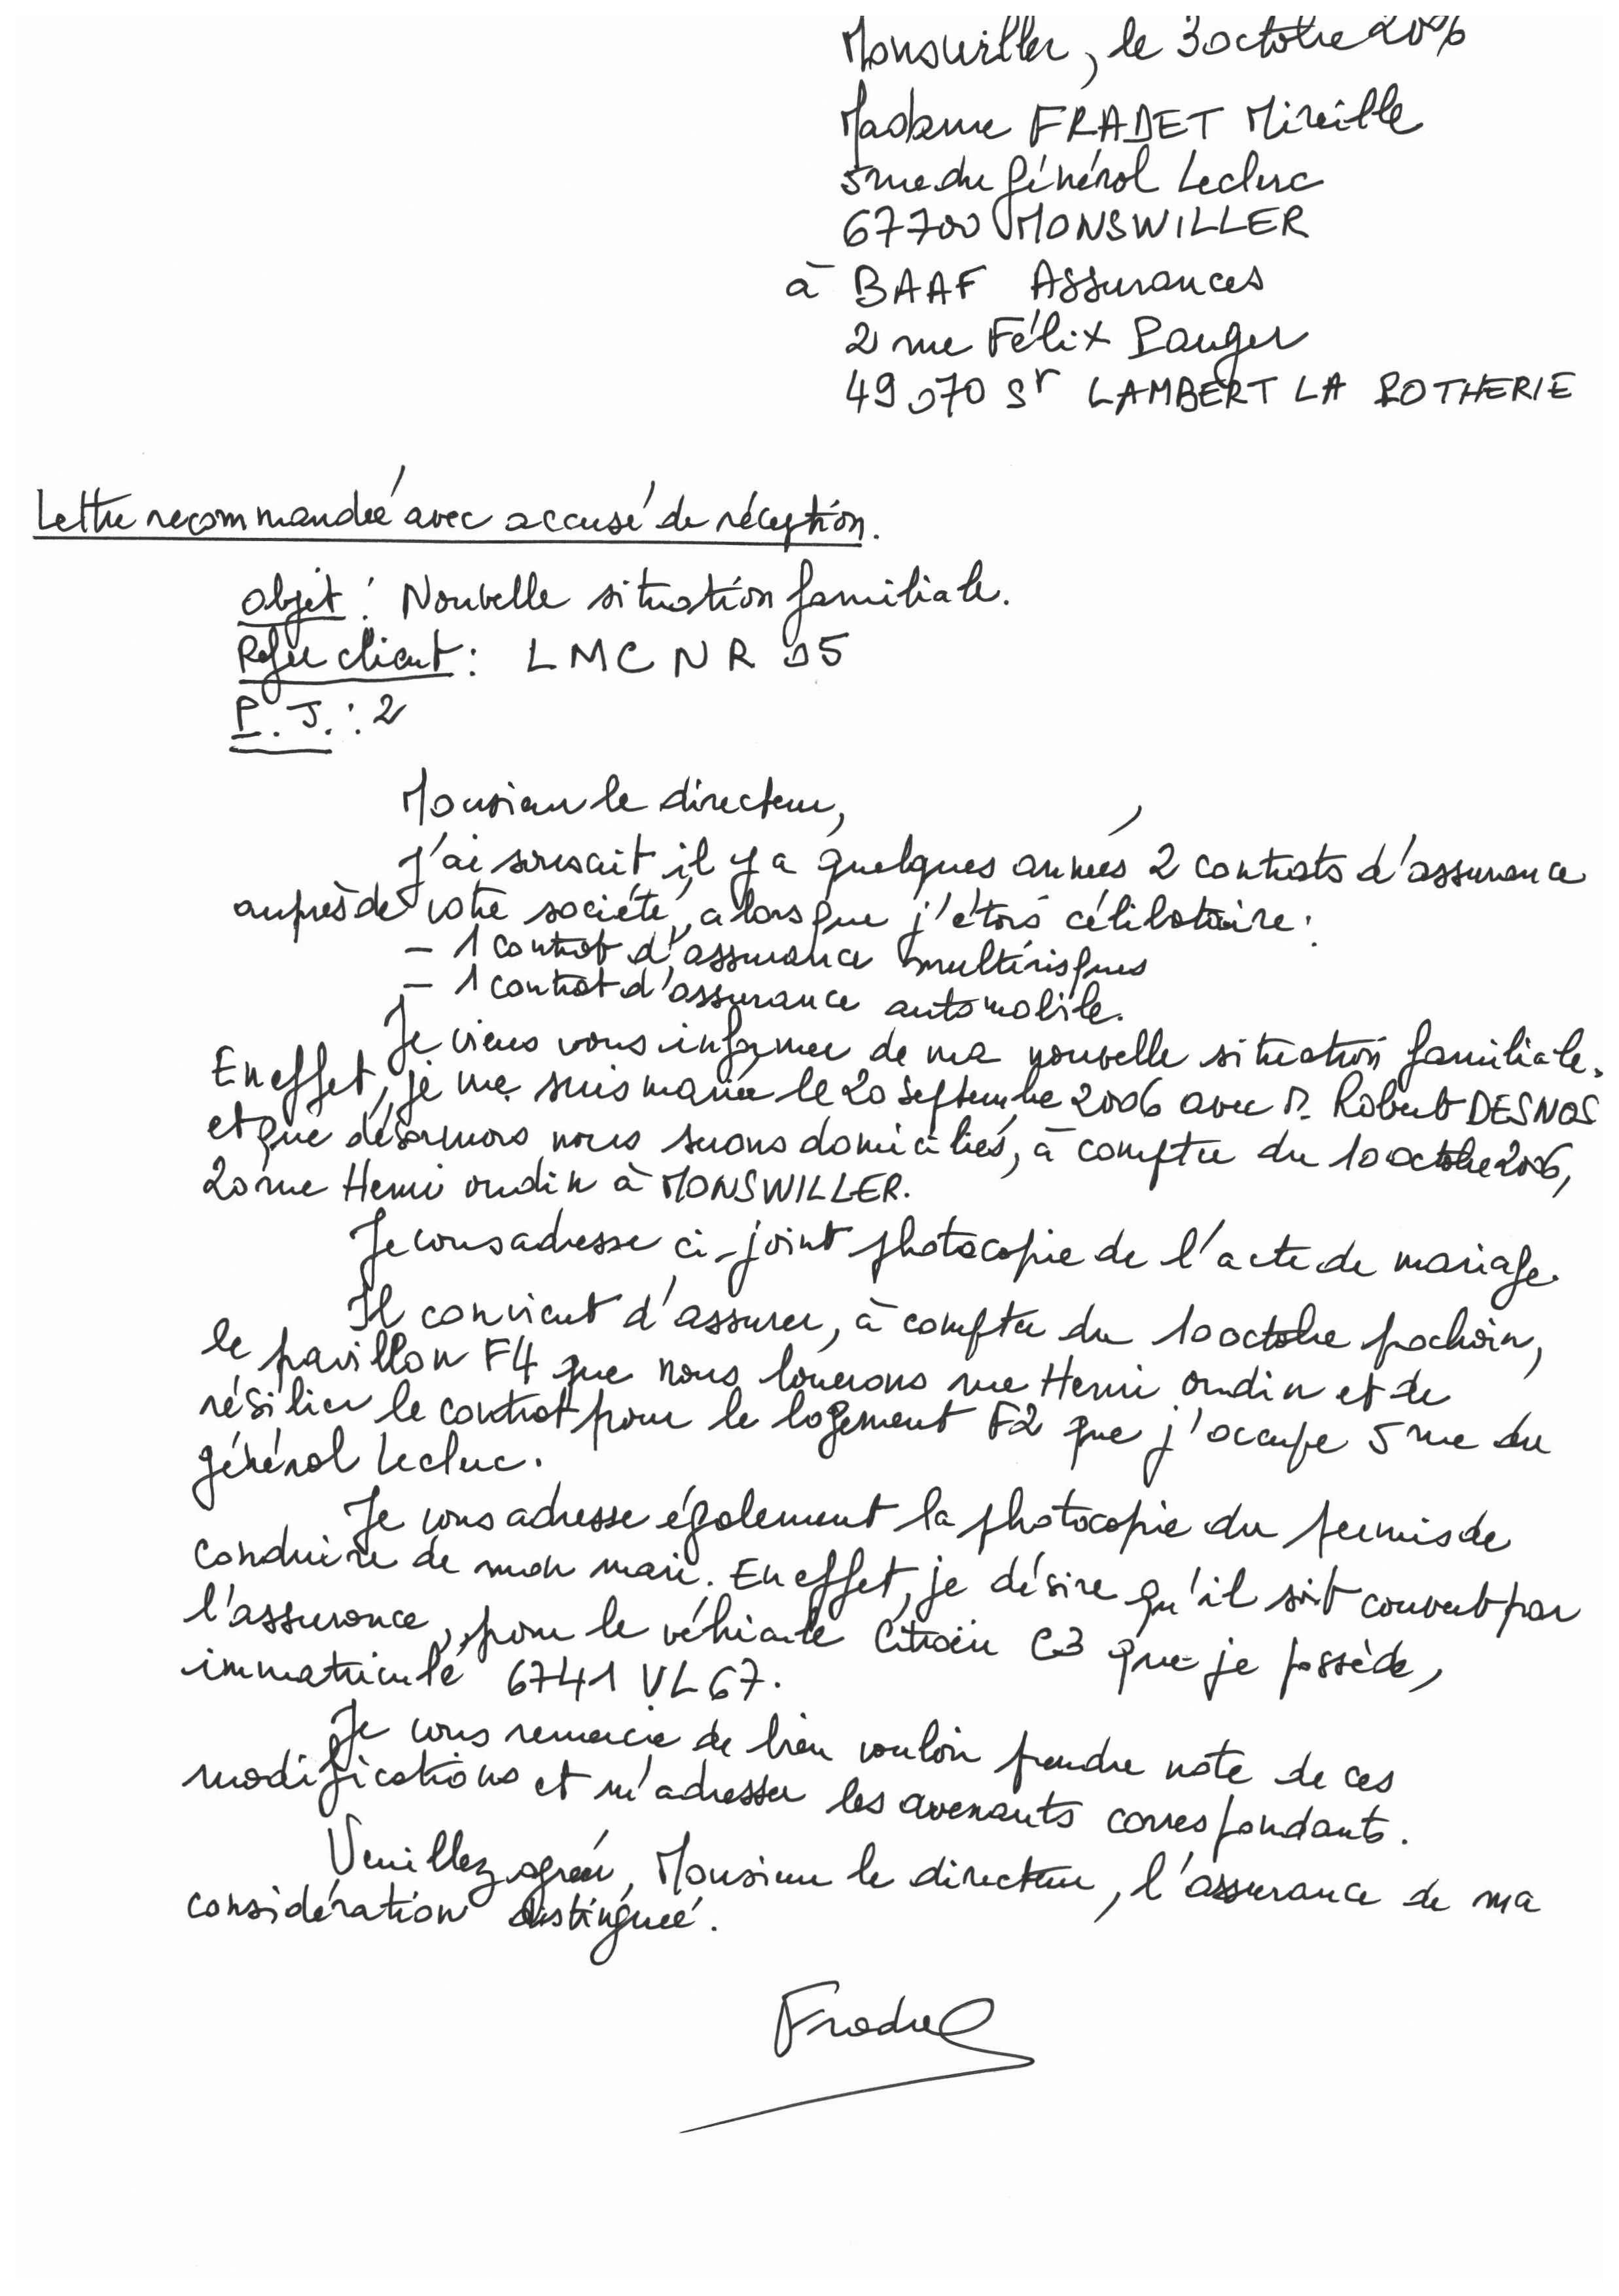 Monswiller, le 3 octobre 2006
Madame FRADET Mireille
5 rue du Général Leclerc
67700 MONSWILLER
à BAAF Assurances
2 rue Félix Pauger
49070 St LAMBERT LA POTHERIE
Lettre recommandée avec accusé de réception.
Objet : Nouvelle situation familiale.
Réfce client : LMCNR 05
P.J. : 2
Monsieur le directeur,
J'ai souscrit il y a quelques années 2 contrats d'assurance
auprès de votre société, alors que j'étais célibataire :
- 1 contrat d'assurance multirisques
- 1 contrat d'assurance automobile.
Je viens vous informer de ma nouvelle situation familiale.
En effet, je me suis mariée le 20 septembre 2006 avec M. Robert DESNOS
et que désormais nous serons domiciliés, à compter du 10 octobre 2006,
20 rue Henri oudin à MONSWILLER.
Je vous adresse ci-joint photocopie de l'acte de mariage.
Il convient d'assurer, à compter du 10 octobre prochain,
le pavillon F4 que nous louerons rue Henri oudin et de
résilier le contrat pour le logement F2 que j'occupe 5 rue du
général Leclerc.
Je vous adresse également la photocopie du permis de
conduire de mon mari. En effet, je désire qu'il soit couvert par
l'assurance, pour le véhicule Citroën C3 que je possède,
immatriculé 6741 VL 67.
Je vous remercie de bien vouloir prendre note de ces
modifications et m'adresser les avenants correspondants.
Veuillez agréer, Monsieur le directeur, l'assurance de ma
considération distinguée.